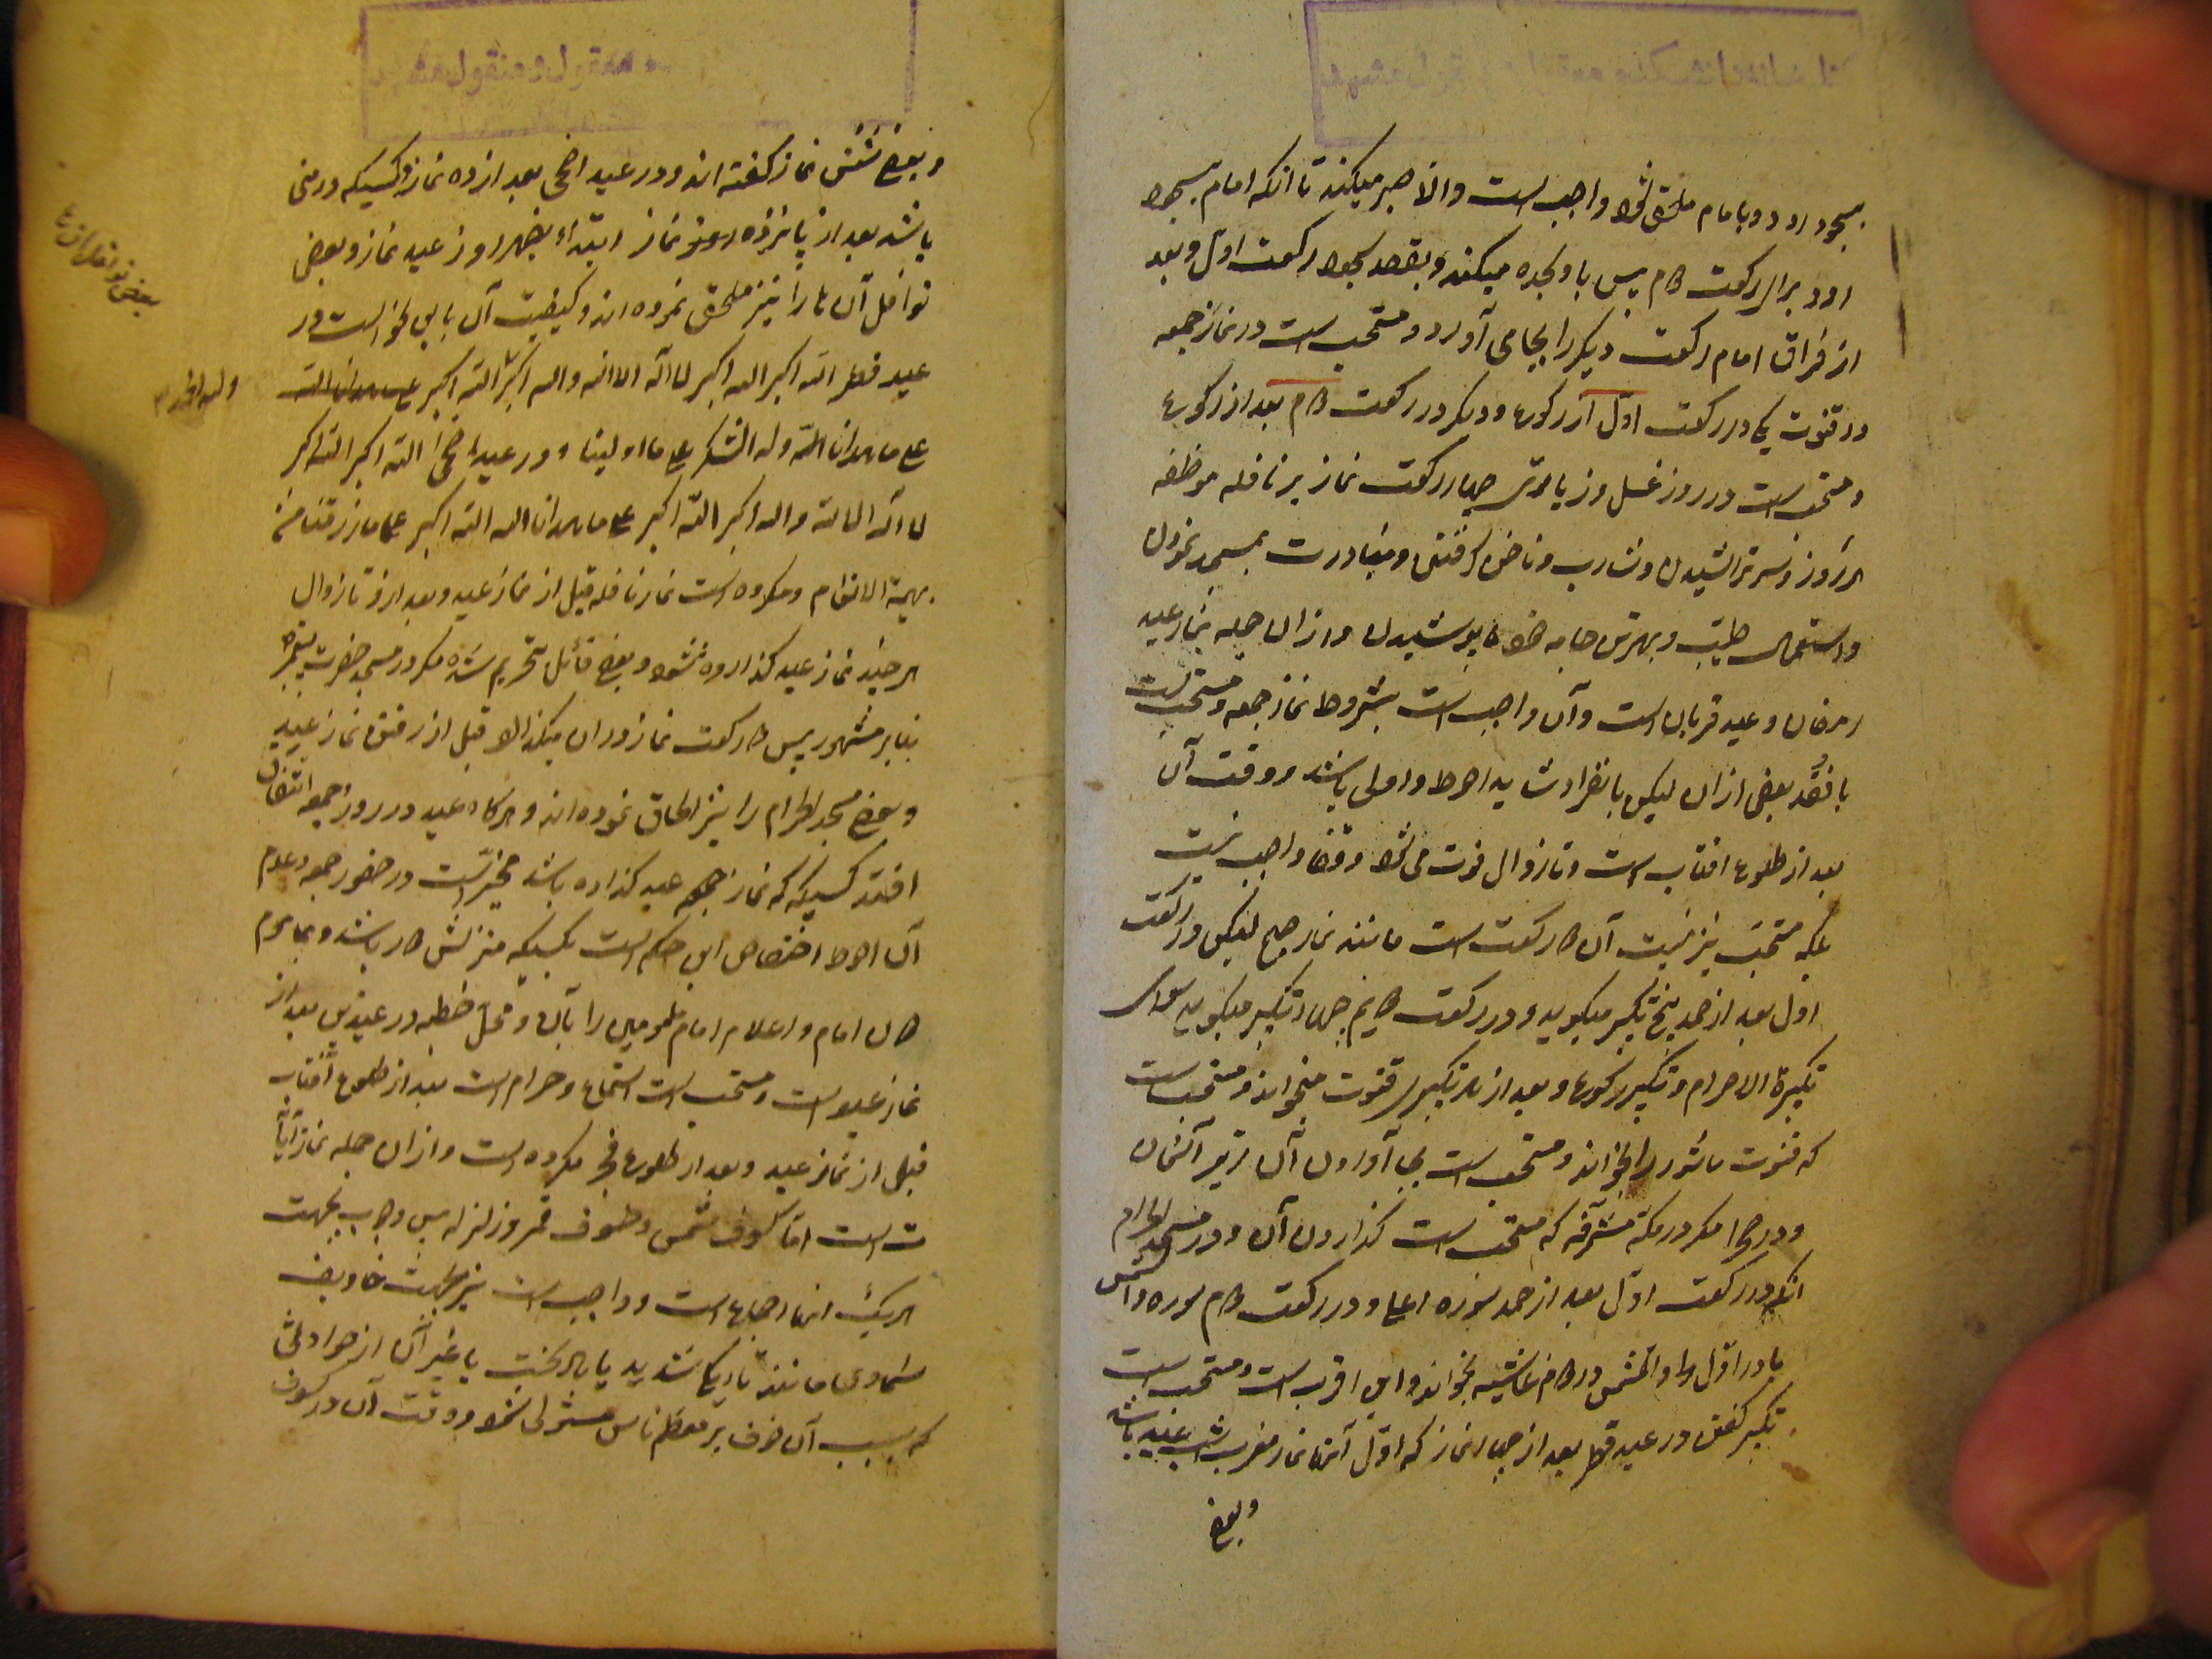 بسجود رود و با امام ملحق شود واجب است والا صبر میکند تا آنکه امام بسجود
رود برای رکعت دوم پس با او سجده میکند و بقصد سجود رکعت اول و بعد
از فراق امام رکعت دیگر را بجا می آورد و مستحب است در نماز جمعه
دو قنوت یکی در رکعت اول از رکوع و دیگر در رکعت دوم بعد از رکوع
و مستحب است در روز غسل و زیادتی چهار رکعت نماز بر نافله موظفه
هر روز و سر تراشیدن و شارب و ناخن گرفتن و مبادرت بمسجد نمودن
و استعمال طیب و بهترین جامه خود پوشیدن و از آن جمله نماز عید
رمضان و عید قربان است و آن واجب است بشروط نماز جمعه و مستحب است
با فقد بعض از آن لیکن بانفراد شاید احوط و اولی باشد و وقت آن
بعد از طلوع افتاب است و تا زوال فوت می شود و قضا واجب نیست
بلکه مستحب نیز نیست آن دو رکعت است مانند نماز صبح لیکن در رکعت
اول بعد از حمد پنج تکبیر میگوید و در رکعت دویم چهار تکبیر میگوید سوای
تکبیرة الاحرام و تکبیر رکوع و بعد از هر تکبیر قنوت میخواند و مستحب است
که قنوت ماثور را بخواند و مستحب است بجا آوردن آن زیر آسمان
و در صحرا مگر در مکه مشرفه که مستحب است گذاردن آن در مسجد الحرام
آنکه در رکعت اول بعد از حمد سوره اعلی و در رکعت دوم سوره والشمس
یا در اول والشمس و در دوم غاشیه بخواند و این اقرب است و مستحب است
تکبیر گفتن در عید فطر بعد از چهار نماز که اول آنها نماز مغرب شب عید باشد
و بعضی
و بعضی شش نماز گفته اند و در عید اضحی بعد از ده نماز و کسیکه در منی
باشد بعد از پانزده نماز ابتداء بظهر روز عید نماز و بعضی
نوافل آن ها را نیز ملحق نموده اند و کیفیت آن باین نحو است در
عید فطر الله اکبر الله اکبر لا اله الا الله والله اکبر الله اکبر
علی ما هدانا الله وله الشکر علی ما اولینا و در عید اضحی الله اکبر الله اکبر
لا اله الا الله والله اکبر الله اکبر علی ما هدانا الله الله اکبر علی ما رزقنا من
بهیمة الانعام و مکروه است نماز نافله قبل از نماز عید و بعد از و تا زوال
هر چند نماز عید گذارده نشود و بعضی قائل بتحریم شده مگر در مسجد حضرت پیغمبر
بنابر مشهور پس دو رکعت نماز در آن میگذارد قبل از رفتن نماز عید
و بعضی مسجد الحرام را نیز الحاق نموده اند و هرگاه عید در روز جمعه اتفاق
افتد کسیکه که نماز عید گذارده باشد مخیر است در حضور جمعه و عدم
آن احوط اختصاص این حکم است بکسیکه منزلش دور باشد و بماموم
دون امام و اعلام امام مامومین را بآن و محل خطبه در عیدین بعد از
نماز عید است و مستحب است استماع و حرام است بعد از طلوع آفتاب
قبل از نماز عید و بعد از طلوع فجر مکروه است و از آن جمله نماز آیا
ت است اما کسوف شمس و خسوف قمر و زلزله پس وجوب بجهت
هر یک اینها اجماع است و واجب است نیز بجهت مخاویف
سماوی مانند تاریکی شدید یا باد سخت یا غیر آن از حوادثی
که بسبب آن خوف بر معظم ناس مستولی شود و وقت آن در کسوف
بعضی نوافل آن ها